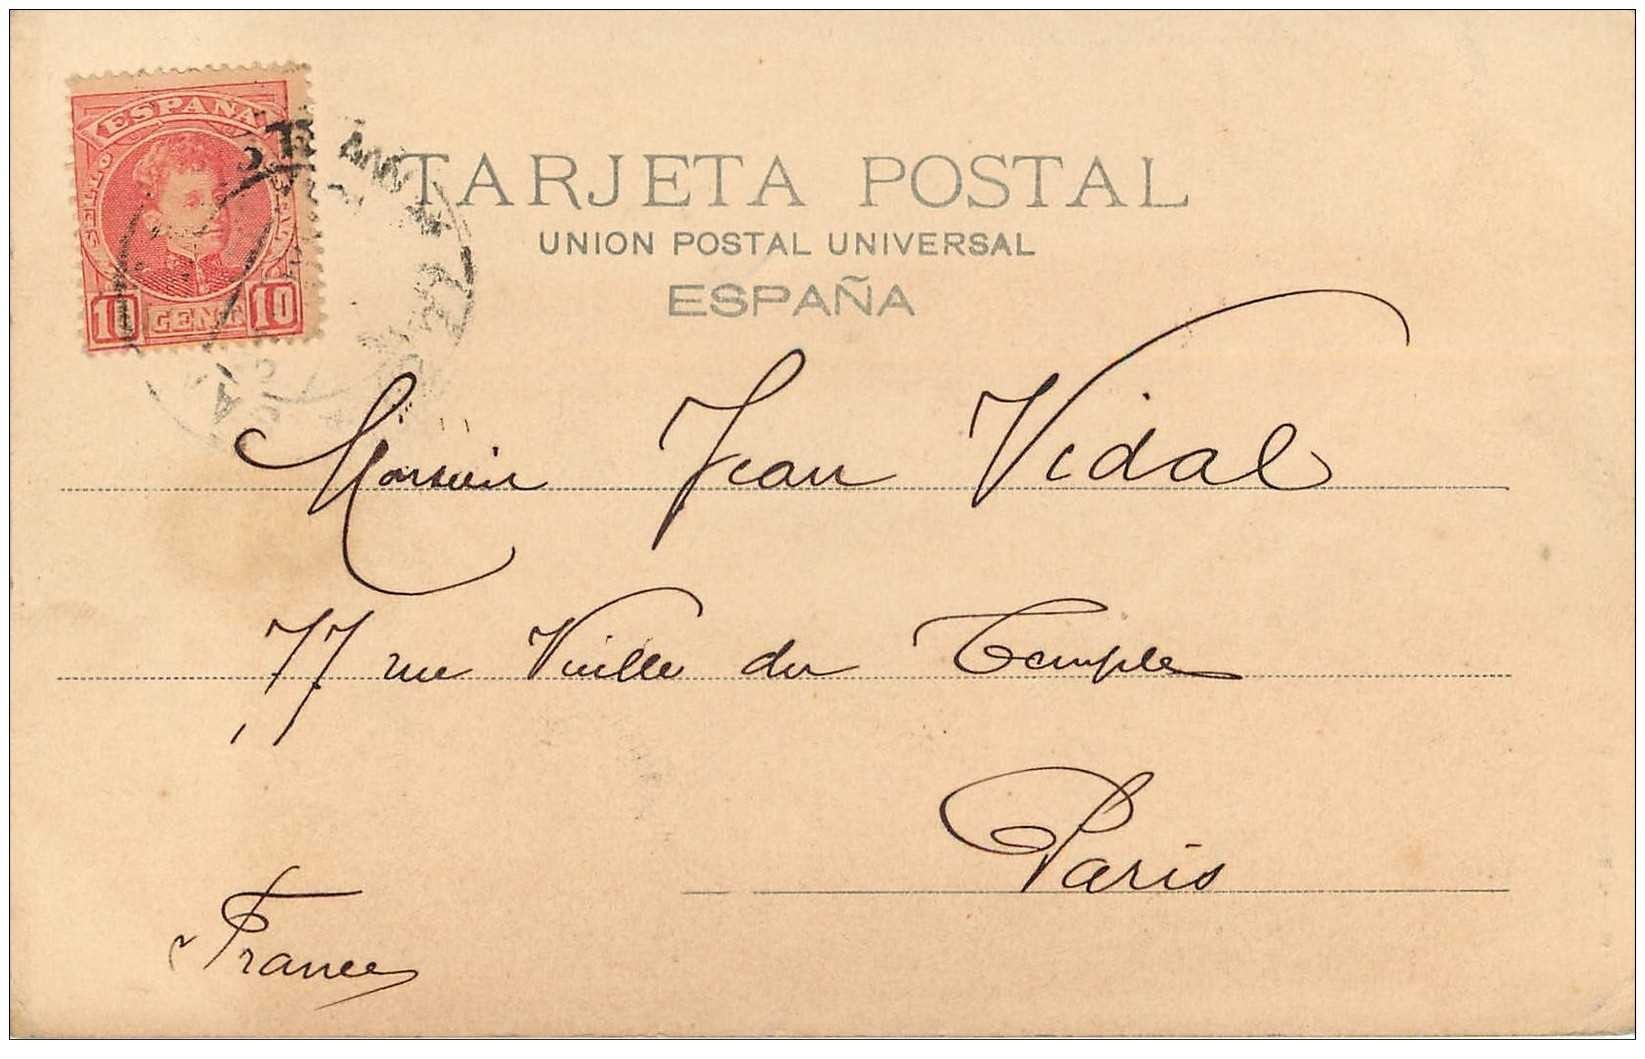 ESPAÑA
10 CENT. 10
TARJETA POSTAL
UNION POSTAL UNIVERSAL
ESPAÑA
Monsieur Jean Vidal
77 rue Vieille du Temple
Paris
France